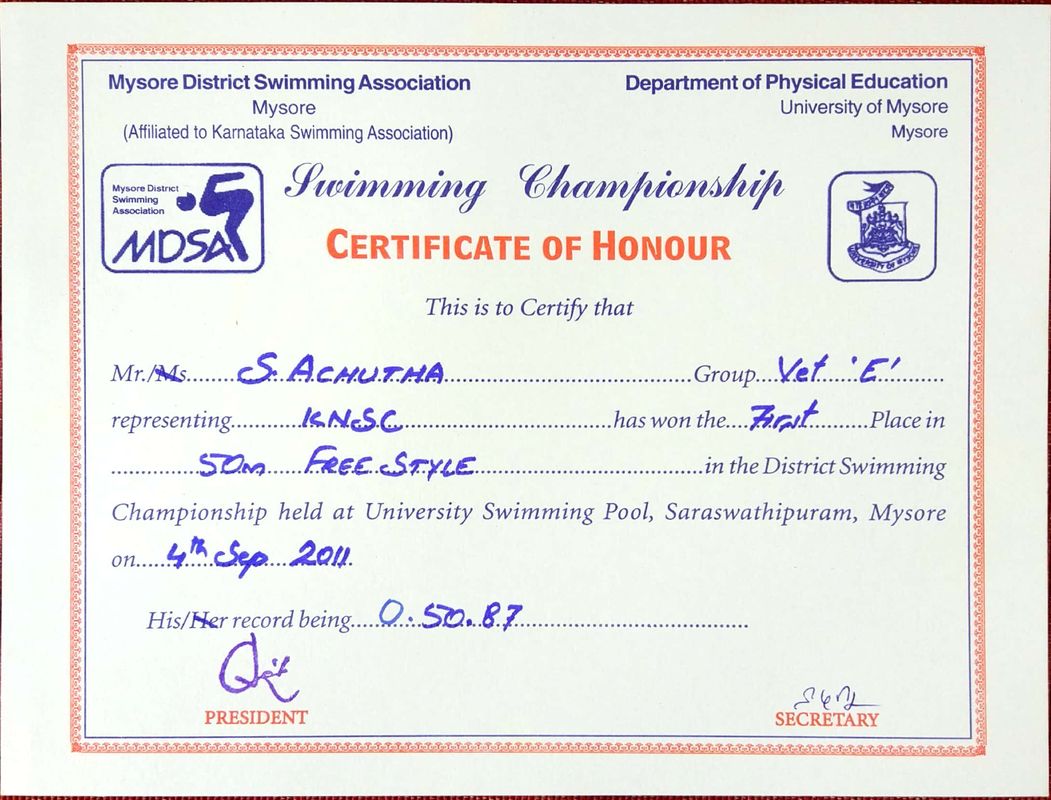 Mysore District Swimming Association
Mysore
(Affiliated to Karnataka Swimming Association)
Department of Physical Education
University of Mysore
Mysore
Mysore District
Swimming
Association
MDSA
Swimming Championship
CERTIFICATE OF HONOUR
UNIVERSITY OF MYSORE
This is to Certify that
Mr./Ms. S. ACHUTHA Group Vet 'E'
representing KNSC has won the First Place in
50m FREE STYLE in the District Swimming
Championship held at University Swimming Pool, Saraswathipuram, Mysore
on 4th Sep 2011.
His/Her record being 0.50.87
PRESIDENT
SECRETARY